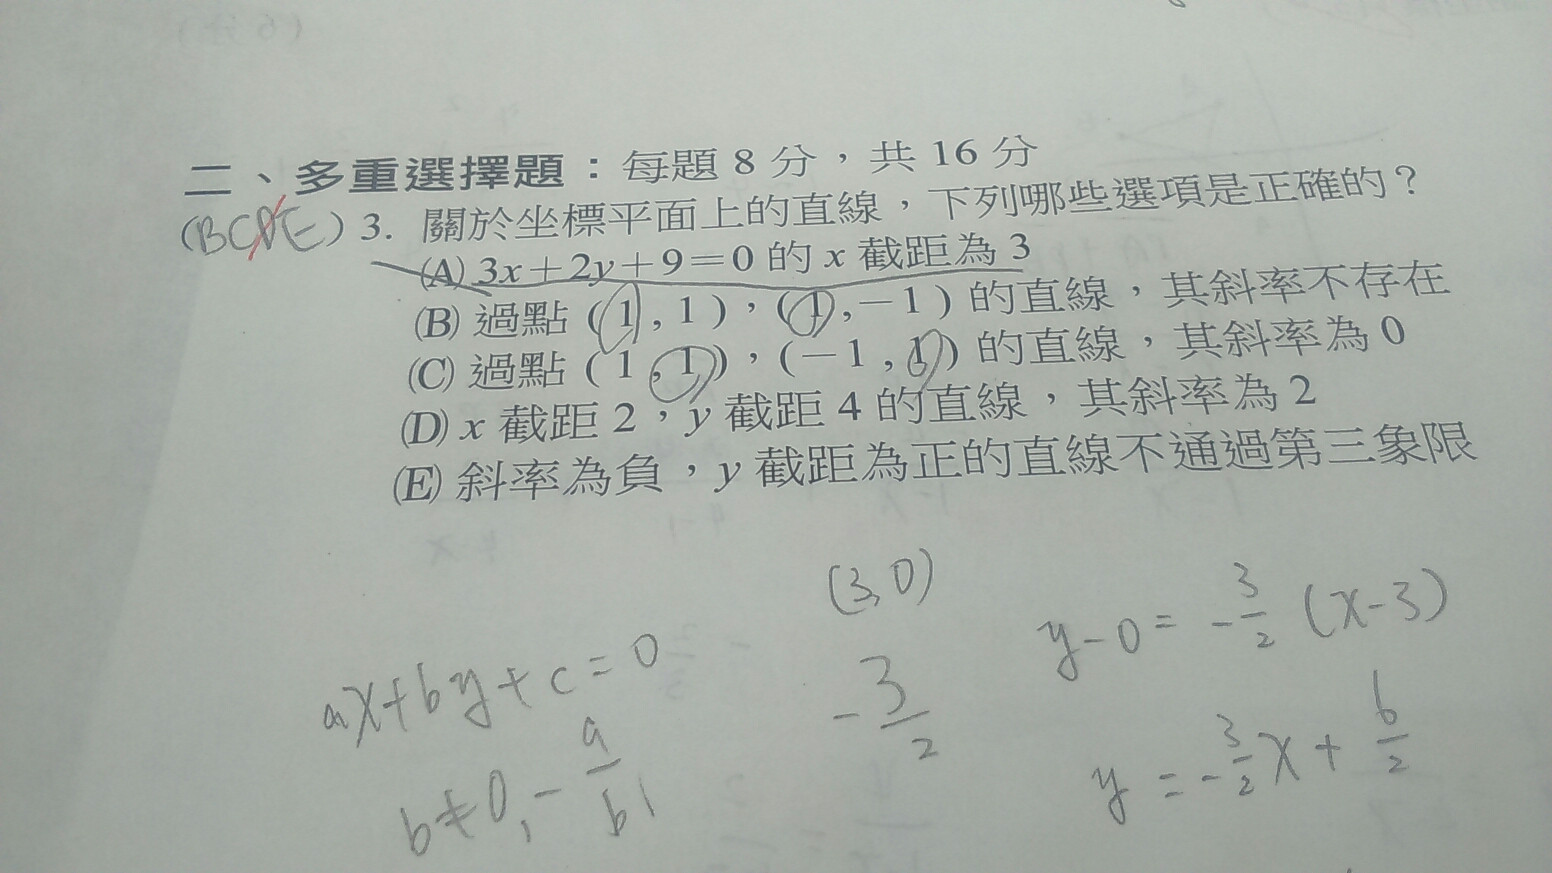 二、多重選擇題：每題 8 分，共 16 分
(BCDE) 3. 關於坐標平面上的直線，下列哪些選項是正確的？
(A) 3x+2y+9=0 的 x 截距為 3
(B) 過點 (1,1)，(1,−1) 的直線，其斜率不存在
(C) 過點 (1,1)，(−1,1) 的直線，其斜率為 0
(D) x 截距 2，y 截距 4 的直線，其斜率為 2
(E) 斜率為負，y 截距為正的直線不通過第三象限
(3,0)
y-0= -3/2 (x-3)
ax+by+c=0
-3/2
y=-3/2x+6/2
b≠0, -a/b